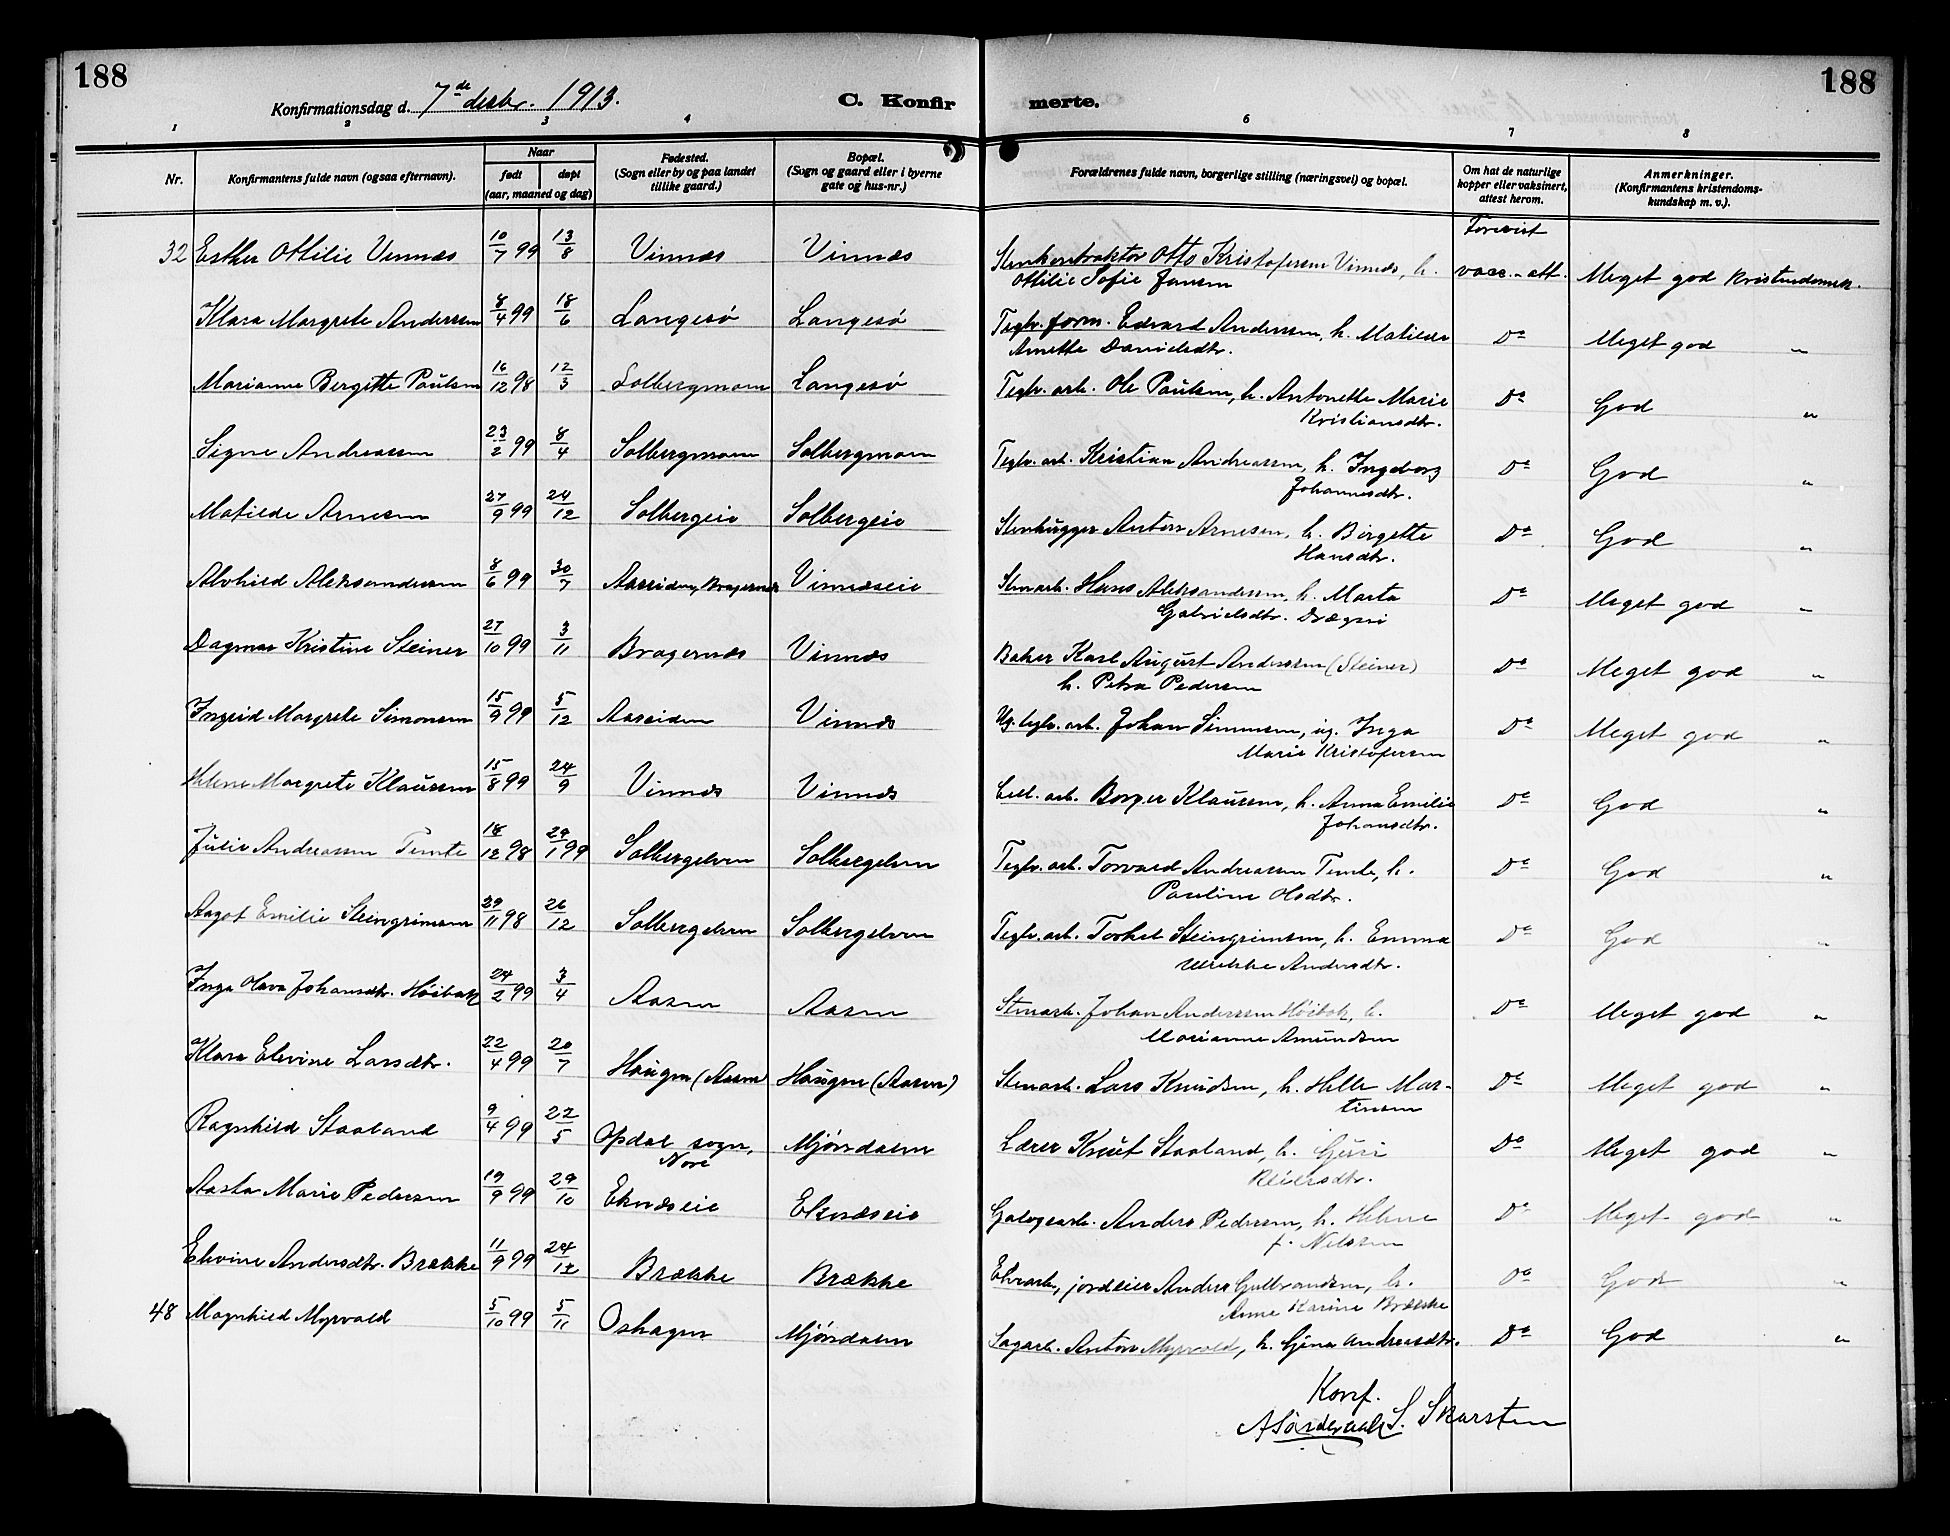 188
188
Konfirmationsdag d. 7de desbr. 1913.
C. Konfir
merte.
1 2 3 4 6 7 8
Nr.
Konfirmantens fulde navn (ogsaa efternavn).
Naar
født
døpt
(aar, maaned og dag)
Fødested.
(Sogn eller by og paa landet
tillike gaard.)
Bopæl.
(Sogn og gaard eller i byerne
gate og hus-nr.)
Forældrenes fulde navn, borgerlige stilling (næringsvei) og bopæl.
Om hat de naturlige
kopper eller vaksinert,
attest herom.
Anmerkninger.
(Konfirmantens kristendoms-
kundskap m. v.).
Forevist
32 Esther Ottilie Vinnæs 10/7 99 13/8 Vinnæs Vinnæs Stenkontraktør Otto Kristofersen Vinnæs, h. vacc.-att. Meget god Kristendomsk.
Ottilie Sofie Jansen
Klara Margrete Anderssen 8/4 99 18/6 Langesø Langesø Teglv.form. Edvard Anderssen, h. Matilde Do Meget god "
Anette Danielsdtr.
Marianne Bergitte Paulsen 16/12 98 12/3 Solbergmoen Langesø Teglv. arb. Ole Paulsen, h. Antonette Marie Do God "
Kristiansdtr.
Signe Andreassen 23/2 99 8/4 Solbergmoen Solbergmoen Teglv. arb. Kristian Andreassen, h. Ingeborg Do God "
Johannesdtr.
Matilde Arnesen 27/9 99 24/12 Solbergeie Solbergeie Stenhugger Anton Arnesen, h. Birgette Do God "
Hansdtr.
Alvhild Aleksandersen 8/6 99 30/7 Aassiden, Bragernæs Vinnæseie Stenarb. Hans Aleksandersen, h. Marta Do Meget god "
Gabrielsdtr. Drægni
Dagmar Kristine Steiner 27/10 99 3/11 Bragernæs Vinnæs Baker Karl August Anderssen (Steiner) Do Meget god "
h. Petra Pedersen
Ingrid Margrete Simonsen 15/9 99 5/12 Aassiden Vinnæs Ug. teglv. arb. Johan Simonsen, ug. Inga Do Meget god "
Marie Kristofersen
Helene Margrete Klausen 15/8 99 24/9 Vinnæs Vinnæs Cell. arb. Borger Klausen, h. Anna Emilie Do God "
Johansdtr.
Julie Andreassen Temte 18/12 98 29/1 99 Solbergelven Solbergelven Teglv. arb. Torvald Andreassen Temte, h. Do God "
Pauline Olsdtr.
Aagot Emilie Steingrimsen 29/11 98 26/12 Solbergelven Solbergelven Teglv. arb. Torkel Steingrimsen, h. Emma Do God "
Ulrikke Andersdtr.
Inga Olava Johansdtr. Høibak 24/2 99 3/4 Aasen Aasen Stenarb. Johan Anderssen Høibak, h. Do Meget god "
Marianne Amundsen
Klara Elevine Larsdtr. 22/4 99 20/7 Haugen (Aasen) Haugen (Aasen) Stenarb. Lars Knudsen, h. Helle Mar- Do Meget god "
tinsen
Ragnhild Staaland 9/4 99 22/5 Opdal sogn, Mjøndalen Lærer Knut Staaland, h. Guri Do Meget god "
Nore
Reiersdtr.
Aasta Marie Pedersen 19/9 99 29/10 Eknæseie Eknæseie Gatvgearb. Anders Pedersen, h. Helene Do Meget god "
f. Nilssen
Elevine Andersdtr. Brække 11/9 99 24/12 Brække Brække Elvearb., jordeier Anders Gulbrandsen, h. Do God "
Anne Karine Brække
48 Magnhild Myrvold 5/10 99 5/11 Oshagen Mjøndalen Sagarb. Anton Myrvold, h. Gina Andreasdtr. Do God "
Konf.
S. Skarsten